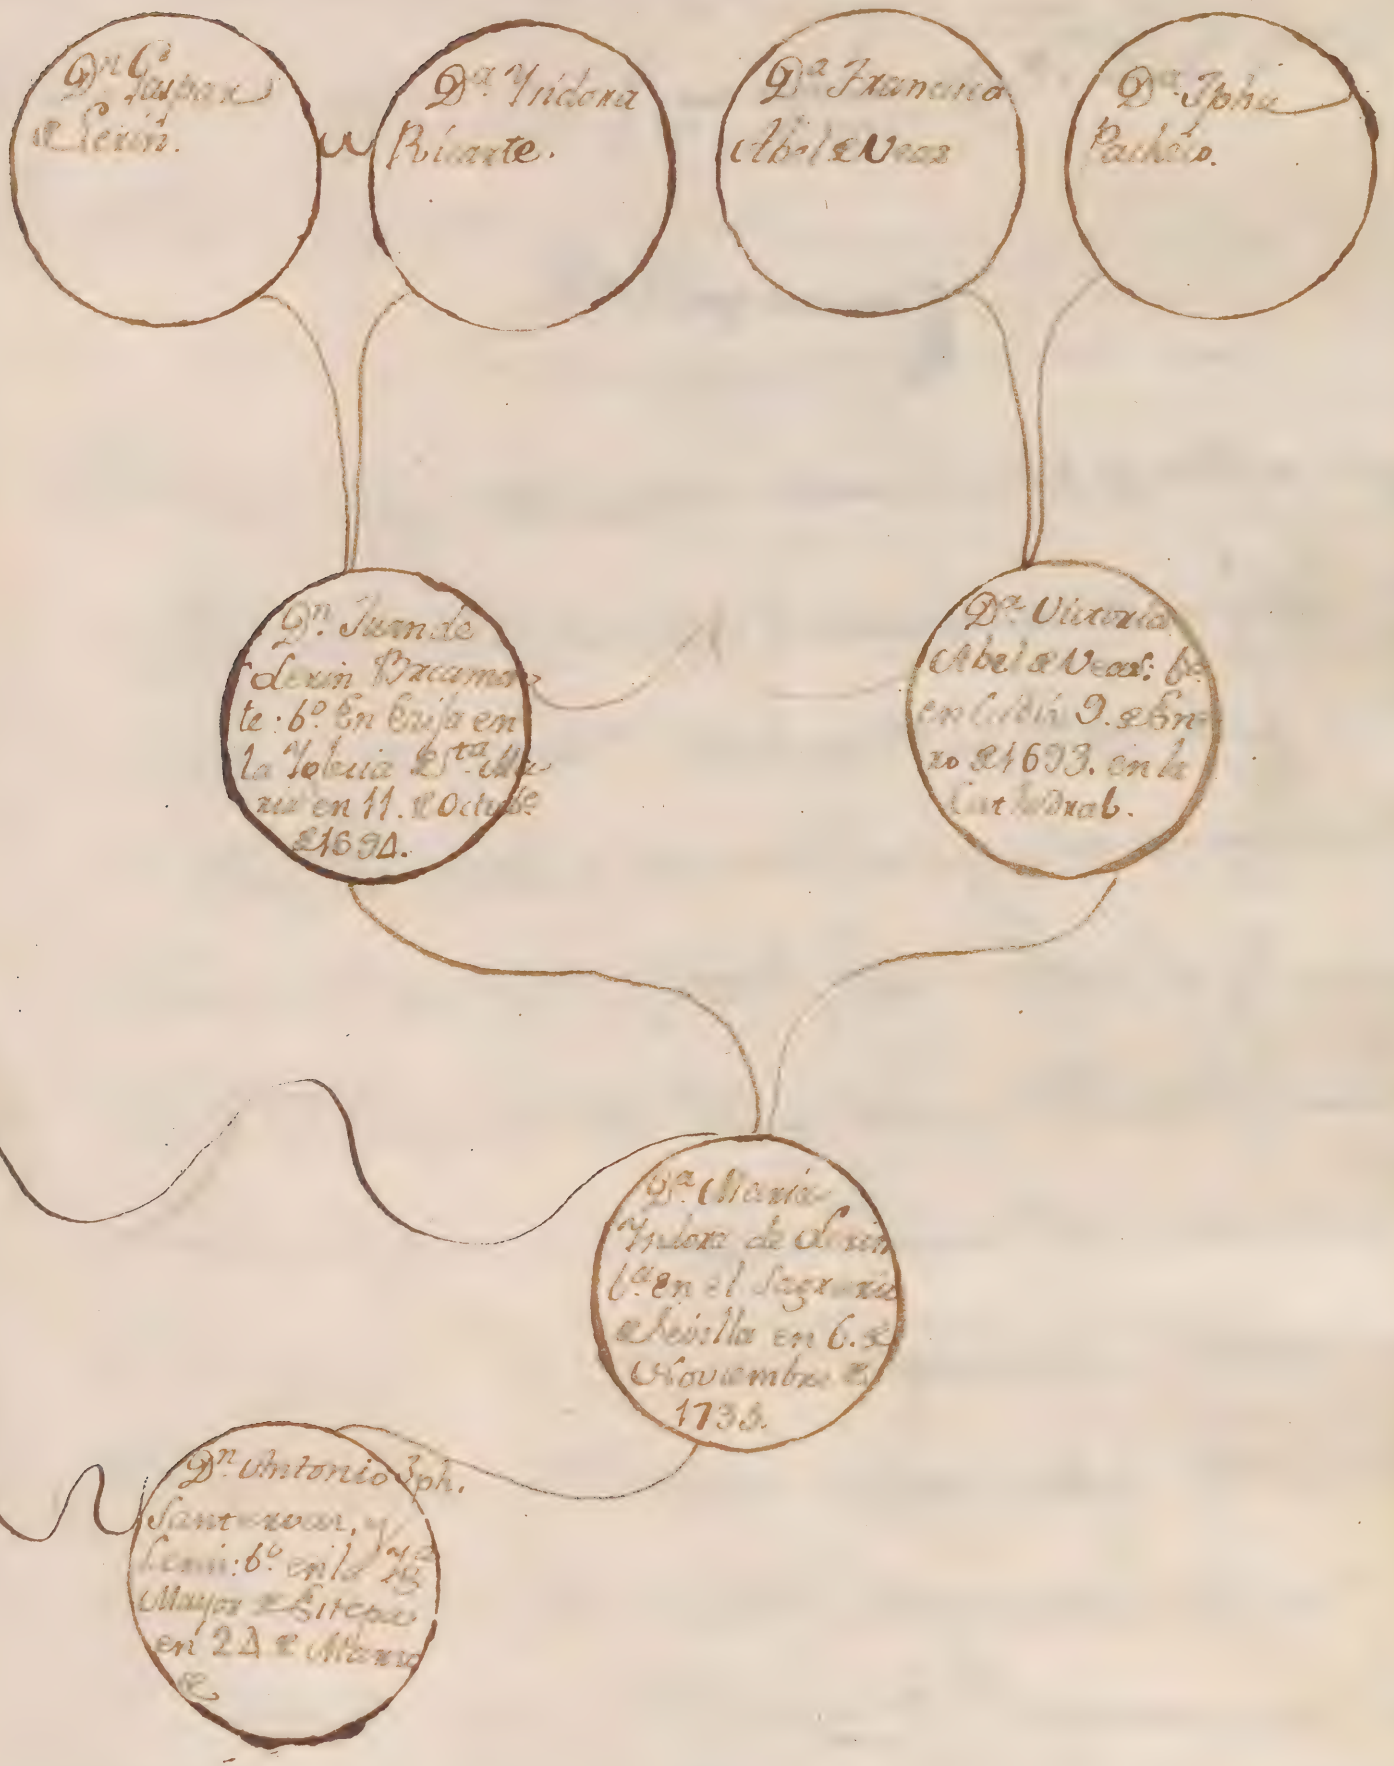 Dn Gaspar
de Lerin.
Da. Ysidora
Ricarte.
Da Francisco
Abel de Vear
Da. Jpha
Pacheco.
Dn. Juan de
Lerin Bracamon
te: bo. En Ecija en
la Yglecia de Sta. Ma
ria en 11. de Octube.
de 1694.
Da. Victoria
Abel de Vear: ba.
en Cadiz 9. de En
ro de 1693. en la
Cathedral.
Da. Maria
Ysidora de Lerin
ba. en el Sagrario
de Sevilla en 6. de
Noviembre de
1735.
Dn. Antonio Jph.
Santervas, y
Lerin: bo. en la Yga
Mayor de Estepa
en 24 de Marzo
de